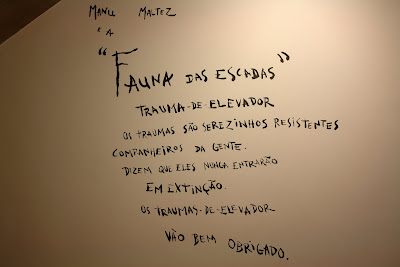 MANU MALTEZ
E A
"FAUNA DAS ESCADAS"
TRAUMA-DE-ELEVADOR
OS TRAUMAS SÃO SEREZINHOS RESISTENTES
COMPANHEIROS DA GENTE.
DIZEM QUE ELES NUNCA ENTRARÃO
EM EXTINÇÃO.
OS TRAUMAS-DE-ELEVADOR
VÃO BEM OBRIGADO.